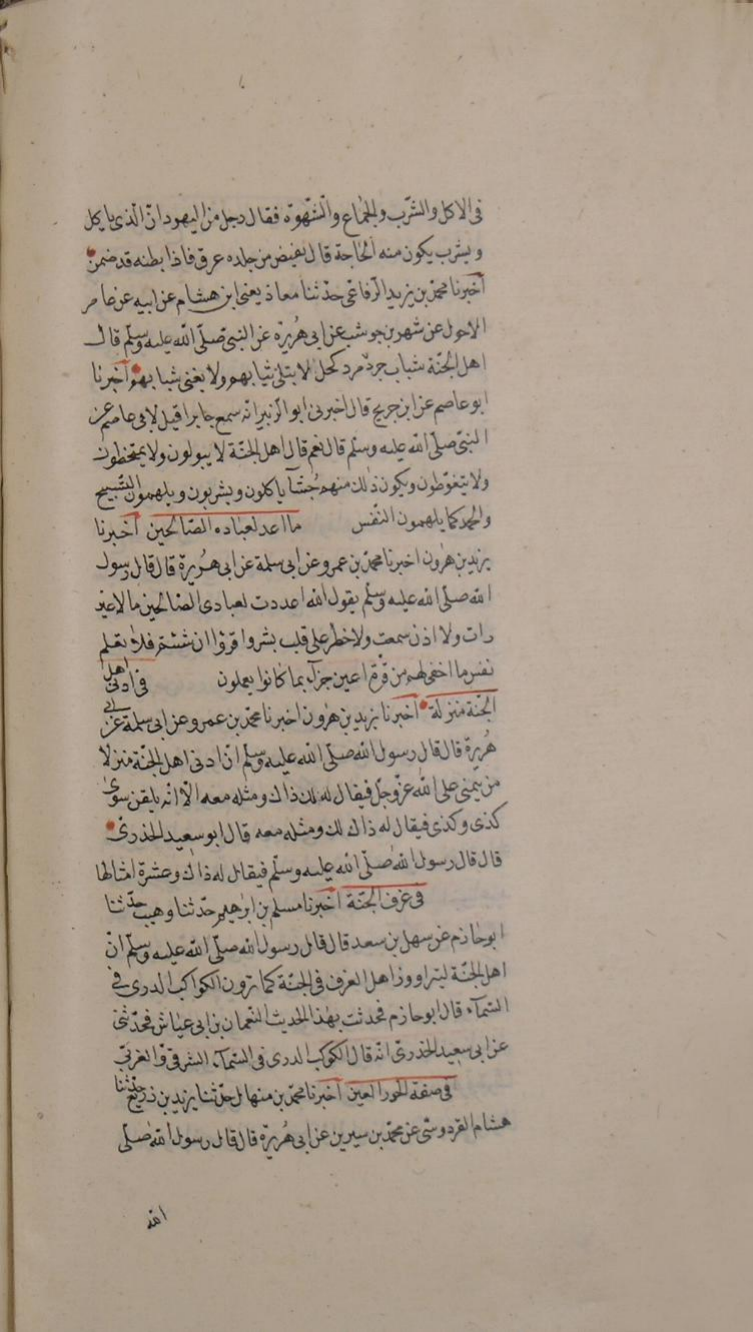 فى الاكل والشرب والجماع والشهوة فقال رجل من اليهود ان الذى ياكل
ويشرب يكون منه الحاجة قال يفيض من جلده عرق فاذا بطنه قد ضمر
اخبرنا محمد بن يزيد الرفاعى حدثنا معاذ يعنى ابن هشام عن ابيه عن عامر
الاحول عن شهر بن حوشب عن ابى هريرة عن النبى صلى الله عليه وسلم قال
اهل الجنة شباب جرد مرد كحل لا يبلى ثيابهم ولا يفنى شبابهم اخبرنا
ابو عاصم عن ابن جريج قال اخبرنى ابو الزبير انه سمع جابرا قيل لابى عاصم عن
النبى صلى الله عليه وسلم قال نعم قال اهل الجنة لا يبولون ولا يمتخطون
ولا يتغوطون ويكون ذلك منهم جشآء ياكلون ويشربون ويلهمون التسبيح
والحمد كما يلهمون النفس ما اعد لعباده الصالحين اخبرنا
يزيد بن هرون اخبرنا محمد بن عمرو عن ابى سلمة عن ابى هريرة قال قال رسول
الله صلى الله عليه وسلم يقول الله اعددت لعبادى الصالحين ما لا عين
رات ولا اذن سمعت ولا خطر على قلب بشر واقرؤا ان شئتم فلا تعلم
نفس ما اخفى لهم من قرة اعين جزآء بما كانوا يعملون فى ادنى اهل
الجنة منزلة اخبرنا يزيد بن هرون اخبرنا محمد بن عمرو عن ابى سلمة عن ابى
هريرة قال قال رسول الله صلى الله عليه وسلم ان ادنى اهل الجنة منزلا
من يتمنى على الله عز وجل فيقال له لك ذاك ومثله معه الا انه يلقن سوى
كذى وكذى فيقال له ذاك لك ومثله معه قال ابو سعيد الخدرى
قال قال رسول الله صلى الله عليه وسلم فيقال له ذاك وعشرة امثالها
فى غرف الجنة اخبرنا مسلم بن ابرهيم حدثنا وهيب حدثنا
ابو حازم عن سهل بن سعد قال قال رسول الله صلى الله عليه وسلم ان
اهل الجنة ليتراوون اهل الغرف فى الجنة كما ترون الكواكب الدرى فى
السمآء قال ابو حازم فحدثت بهذا الحديث النعمان بن ابى عياش فحدثنى
عن ابى سعيد الخدرى انه قال الكوكب الدرى فى السمآء الشرقى والغربى
فى صفة الحور العين اخبرنا محمد بن منهال حدثنا يزيد بن زريع حدثنا
هشام القردوسى عن محمد بن سيرين عن ابى هريرة قال قال رسول الله صلى
الله